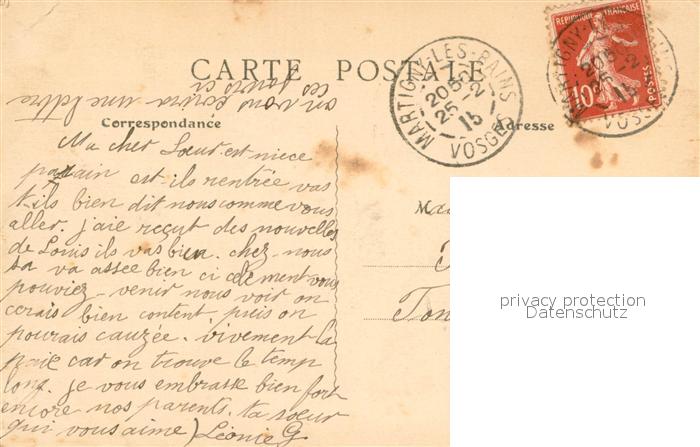 CARTE POSTALE
MARTIGNY-LES-BAINS
20 5
25 - 2
15
VOSGES
REPUBLIQUE FRANÇAISE
10
POSTES
MARTIGNY-LES
20 5
25 - 2
15
VOSGES
on vous ecrira une lettre
ces jours ci
Correspondance
Adresse
Ma cher Sœur est-niece
parain est-ils rentrée vas
t-ils bien dit nous comme vous
aller. j'aie reçut des nouvelles
de Louis ils vas bien. chez nous
sa va assee bien ci celement vous
pouviez venir nous voir on
cerais bien content, puis on
pourais cauzée. vivement la
paie car on trouve le temp
long. je vous embrasse bien fort
encore nos parents. ta soeur
qui vous aime) Léonie G
Ma
Ton
privacy protection
Datenschutz